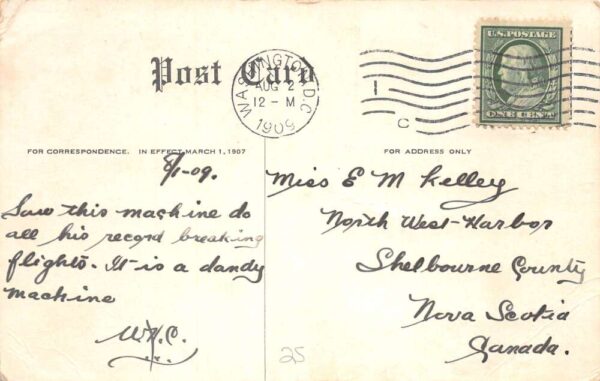 Post Card
WASHINGTON, D.C.
AUG 2
12 - M
1909
1
C
U.S. POSTAGE
ONE CENT
FOR CORRESPONDENCE. IN EFFECT MARCH 1, 1907
FOR ADDRESS ONLY
8/1-09.
Saw this machine do
all his record breaking
flights. It is a dandy
machine
Miss E M Kelley
North West-Harbor
Shelbourne County
Nova Scotia
Canada.
25